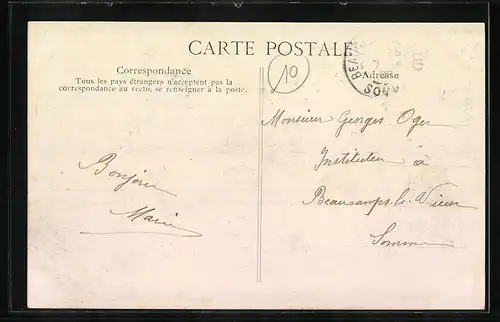 CARTE POSTALE
Correspondance
Tous les pays étrangers n'acceptent pas la
correspondance au recto, se renseigner à la poste.
10
Adresse
BEAU
SOMM
Monsieur Georges Oger
Instituteur à
Beaucamps-le-Vieux
Somme
Bonjour
Marie